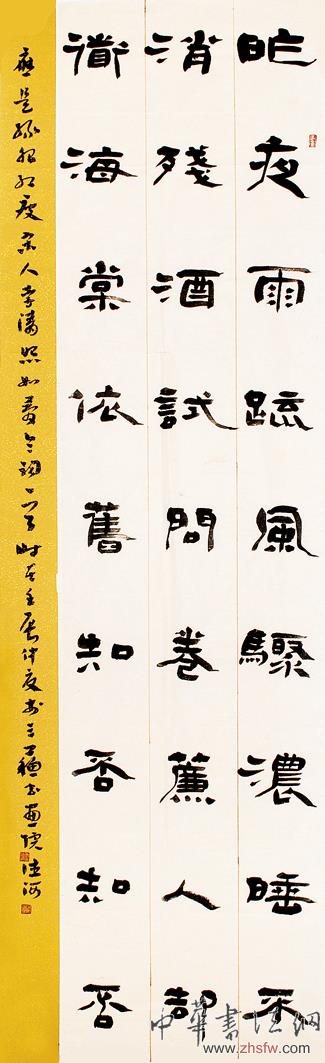 昨夜雨疏風驟濃睡不
消殘酒試問卷簾人却
衟海棠依舊知否知否
應是綠肥紅瘦宋人李清照如夢令詞一首時在壬辰仲夏於三穗書畫院
中華書法網
www.zhsfw.com